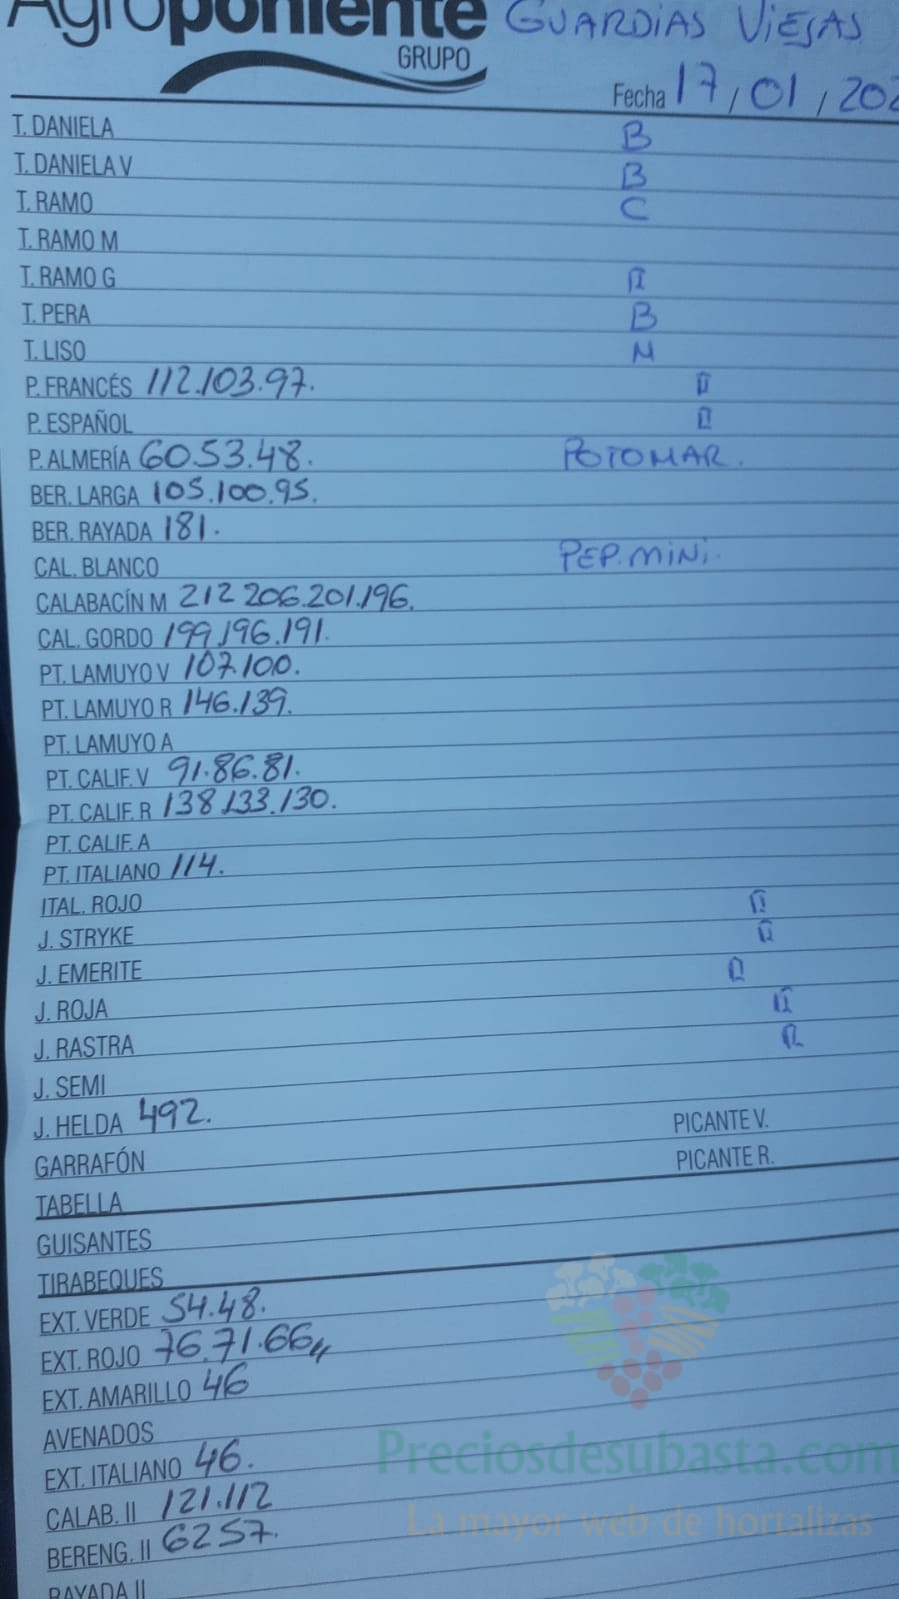 Agroponiente GUARDIAS VIEJAS
GRUPO
Fecha 17/01/202
T. DANIELA B
T. DANIELA V B
T. RAMO C
T. RAMO M
T. RAMO G
T. PERA B
T. LISO M
P. FRANCÉS 112.103.97.
P. ESPAÑOL
P. ALMERÍA 60.53.48. POTOMAR.
BER. LARGA 105.100.95.
BER. RAYADA 181.
CAL. BLANCO PEP.MINI.
CALABACÍN M 212 206.201.196.
CAL. GORDO 199.196.191.
PT. LAMUYO V 107.100.
PT. LAMUYO R 146.139.
PT. LAMUYO A
PT. CALIF. V 91.86.81.
PT. CALIF. R 138.133.130.
PT. CALIF. A
PT. ITALIANO 114.
ITAL. ROJO
J. STRYKE
J. EMERITE
J. ROJA
J. RASTRA
J. SEMI
J. HELDA 492. PICANTE V.
GARRAFÓN PICANTE R.
TABELLA
GUISANTES
TIRABEQUES
EXT. VERDE 54.48.
EXT. ROJO 76.71.66
EXT. AMARILLO 46
AVENADOS
EXT. ITALIANO 46.
CALAB. II 121.112
BERENG. II 62 57.
RAYADA II
Preciosdesubasta.com
La mayor web de hortalizas